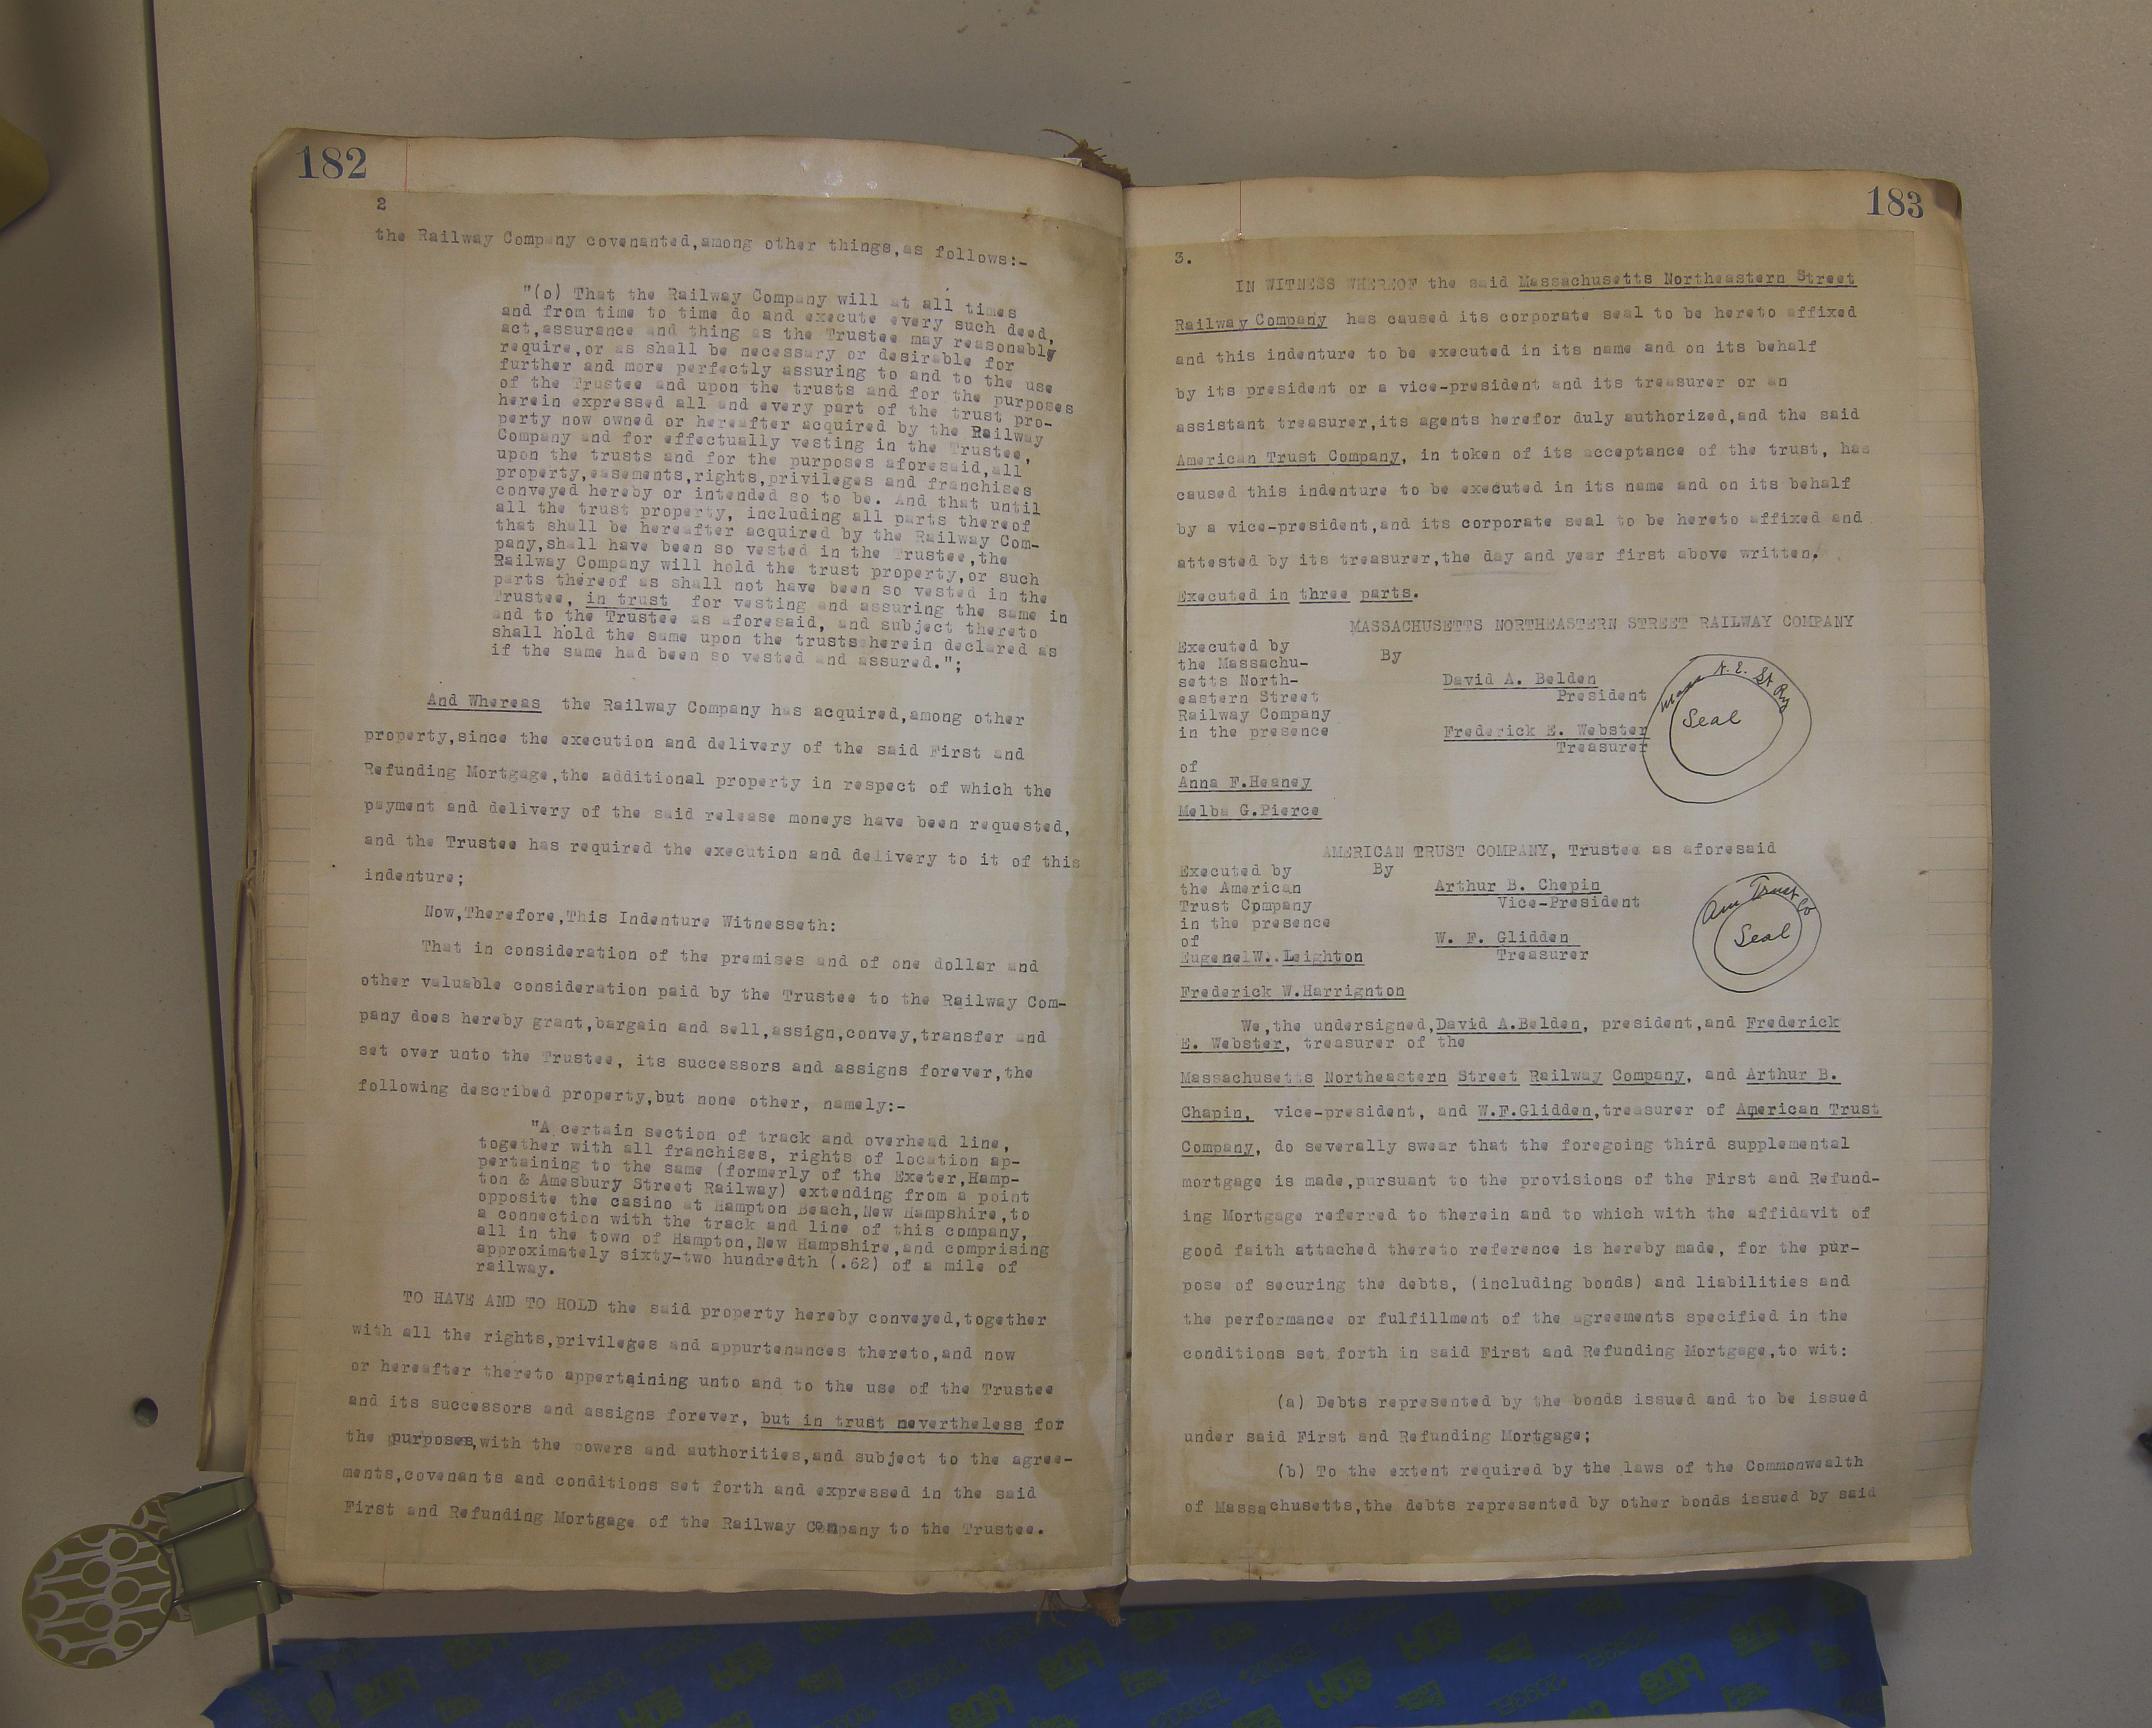 182
2
the Railway Company covenanted,among other things,as follows:-
"(o) That the Railway Company will at all times
and from time to time do and execute every such deed,
act,assurance and thing as the Trustee may reasonably
require,or as shall be necessary or desirable for
further and more perfectly assuring to and to the use
of the Trustee and upon the trusts and for the purposes
herein expressed all and every part of the trust pro-
perty now owned or hereafter acquired by the Railway
Company and for effectually vesting in the Trustee,
upon the trusts and for the purposes aforesaid,all
property,easements,rights,privileges and franchises
conveyed hereby or intended so to be. And that until
all the trust property, including all parts thereof
that shall be hereafter acquired by the Railway Com-
pany,shall have been so vested in the Trustee,the
Railway Company will hold the trust property,or such
parts thereof as shall not have been so vested in the
Trustee, in trust for vesting and assuring the same in
and to the Trustee as aforesaid, and subject thereto
shall hold the same upon the trusts herein declared as
if the same had been so vested and assured.";
And Whereas the Railway Company has acquired,among other
property,since the execution and delivery of the said First and
Refunding Mortgage,the additional property in respect of which the
payment and delivery of the said release moneys have been requested,
and the Trustee has required the execution and delivery to it of this
indenture;
Now,Therefore,This Indenture Witnesseth:
That in consideration of the premises and of one dollar and
other valuable consideration paid by the Trustee to the Railway Com-
pany does hereby grant,bargain and sell,assign,convey,transfer and
set over unto the Trustee, its successors and assigns forever,the
following described property,but none other, namely:-
"A certain section of track and overhead line,
together with all franchises, rights of location ap-
pertaining to the same (formerly of the Exeter,Hamp-
ton & Amesbury Street Railway) extending from a point
opposite the casino at Hampton Beach,New Hampshire,to
a connection with the track and line of this company,
all in the town of Hampton,New Hampshire,and comprising
approximately sixty-two hundredth (.62) of a mile of
railway.
TO HAVE AND TO HOLD the said property hereby conveyed,together
with all the rights,privileges and appurtenances thereto,and now
or hereafter thereto appertaining unto and to the use of the Trustee
and its successors and assigns forever, but in trust nevertheless for
the purposes,with the powers and authorities,and subject to the agree-
ments,covenants and conditions set forth and expressed in the said
First and Refunding Mortgage of the Railway Company to the Trustee.
183
3.
IN WITNESS WHEREOF the said Massachusetts Northeastern Street
Railway Company has caused its corporate seal to be hereto affixed
and this indenture to be executed in its name and on its behalf
by its president or a vice-president and its treasurer or an
assistant treasurer,its agents herefor duly authorized,and the said
American Trust Company, in token of its acceptance of the trust, has
caused this indenture to be executed in its name and on its behalf
by a vice-president,and its corporate seal to be hereto affixed and
attested by its treasurer,the day and year first above written.
Executed in three parts.
MASSACHUSETTS NORTHEASTERN STREET RAILWAY COMPANY
Executed by
the Massachu-
setts North-
eastern Street
Railway Company
in the presence
of
Anna F.Heaney
Melba G.Pierce
By
David A. Belden
President
Frederick E. Webster
Treasurer
Mass N.E. St Ry
Seal
AMERICAN TRUST COMPANY, Trustee as aforesaid
Executed by
the American
Trust Company
in the presence
of
EugenelW..Leighton
Frederick W.Harrignton
By
Arthur B. Chapin
Vice-President
W. F. Glidden
Treasurer
Am Trust Co
Seal
We,the undersigned,David A.Belden, president,and Frederick
E. Webster, treasurer of the
Massachusetts Northeastern Street Railway Company, and Arthur B.
Chapin, vice-president, and W.F.Glidden,treasurer of American Trust
Company, do severally swear that the foregoing third supplemental
mortgage is made,pursuant to the provisions of the First and Refund-
ing Mortgage referred to therein and to which with the affidavit of
good faith attached thereto reference is hereby made, for the pur-
pose of securing the debts, (including bonds) and liabilities and
the performance or fulfillment of the agreements specified in the
conditions set forth in said First and Refunding Mortgage,to wit:
(a) Debts represented by the bonds issued and to be issued
under said First and Refunding Mortgage;
(b) To the extent required by the laws of the Commonwealth
of Massachusetts,the debts represented by other bonds issued by said